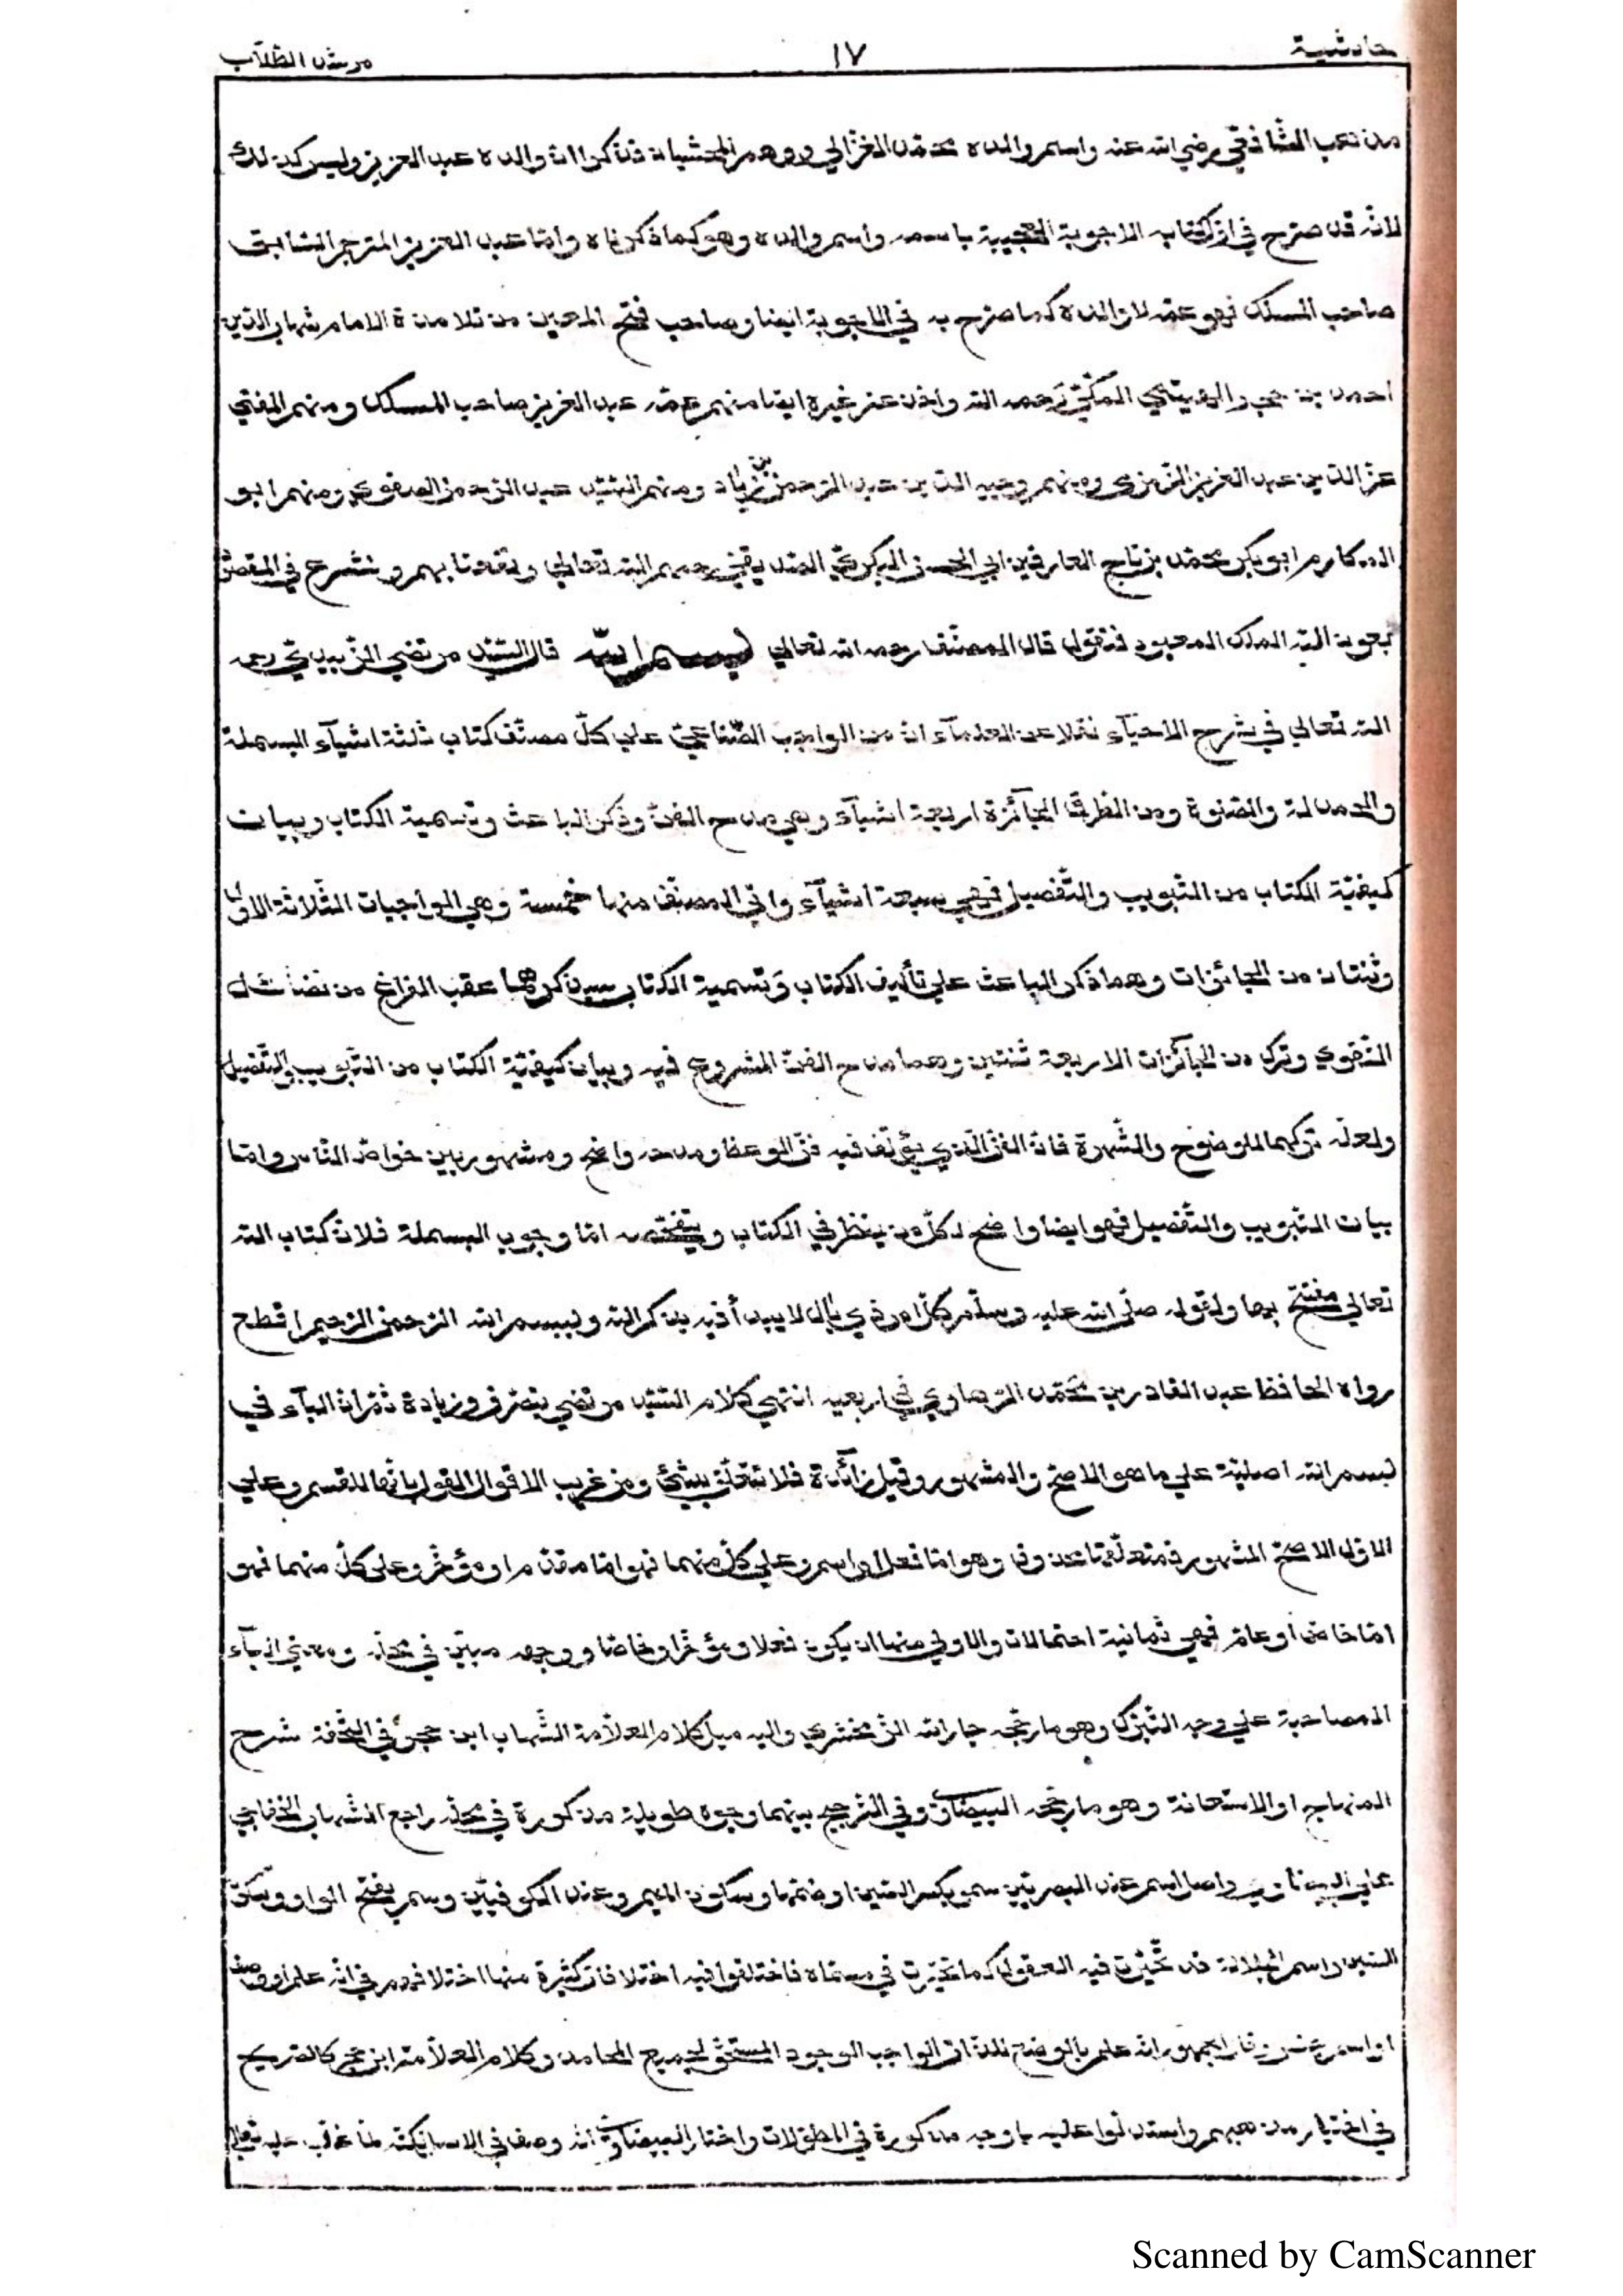 حاشية ١٧ مرشد الطلاب
مذهب الشافعي رضي الله عنه واسم والده محمد الغزالي ووهم المحشيان فذكرا ان والده عبد العزيز وليس كذلك
لانه قد صرح في اخر كتابه الاجوبة العجيبة باسمه واسم والده وهو كما ذكرناه وامّا عبد العزيز المترجم السابق
صاحب المسلك فهو عمّه لا والده كما صرح به في الاجوبة ايضا وصاحب فتح المعين من تلامذة الامام شهاب الدين
احمد بن حجر الهيتمي المكّيّ رحمه الله واخذ عن غيره ايضا منهم عمّه عبد العزيز صاحب المسلك ومنهم المفتي
عزّ الدين عبد العزيز الزمزمي ومنهم وجيه الدين عبد الرحمن بن زياد ومنهم السّيّد عبد الرحمن الصفوي ومنهم ابو
المكارم ابو بكر محمّد بن تاج العارفين ابي الحسن البكريّ الصّدّيقيّ رحمهم الله تعالى ونفعنا بهم ونشرع في المقصود
بعون الله الملك المعبود فنقول قال المصنّف رحمه الله تعالى (بسم الله قال السّيّد مرتضى الزّبيديّ رحمه
الله تعالى في شرح الاحيآء نقلا عن العلمآء انه من الواجب الصّناعيّ على كلّ مصنّف كتاب ثلثة اشيآء البسملة
والحمدلة والصّلوة ومن الطرق الجآئزة اربعة اشيآء وهي مدح الفنّ وذكر الباعث وتسمية الكتاب وبيان
كيفيّة الكتاب من التّبويب والتّفصيل فهي سبعة اشيآء واتى المصنّف منها خمسة وهي الواجبات الثّلاثة الاولى
وثنتان من الجائزات وهما ذكر الباعث على تأليف الكتاب وتسمية الكتاب سيذكرهما عقب الفراغ من فضائل
التّقوى وترك من الجآئزات الاربعة ثنتين وهما مدح الفنّ المشروع فيه وبيان كيفيّة الكتاب من التّبويب والتّفصيل
ولعلّه تركهما للوضوح والشّهرة فانّ الفنّ الّذي يؤلّف فيه فنّ الوعظ ومدحه واضح ومشهور بين خواصّ النّاس وامّا
بيان التّبويب والتّفصيل فهو ايضا واضح لكلّ من ينظر في الكتاب امّا وجوب البسملة فلانّ كتاب الله
تعالى مفتتح بها ولقوله صلّى الله عليه وسلّم كلّ امر ذي بال لا يبدأ فيه بذكر الله وببسم الله الرّحمن الرّحيم اقطع
رواه الحافظ عبد القادر بن محمّد الرهاوي في اربعينه انتهى كلام السّيّد مرتضى بتصرّف وزيادة ثمّ انّ البآء في
بسم الله اصليّة على ما هو الاصحّ والمشهور وقيل زآئدة فلا تتعلّق بشئ ومن غريب الاقوال القول بانّها للقسم وعلى
الاوّل الاصحّ المشهور فمتعلّقها محذوف وهو امّا فعل او اسم وعلى كلّ منهما فهو امّا مقدّم او مؤخّر وعلى كلّ منهما فهو
امّا خاصّ او عامّ فهي ثمانية احتمالات والاولى منها ان يكون فعلا ومؤخّرا وخاصّا ووجهه مبيّن في محلّه ومعنى البآء
المصاحبة على وجه التّبرّك وهو ما رجّحه جار الله الزّمخشري واليه ميل كلام العلّامة الشّهاب ابن حجر في التّحفة شرح
المنهاج او الاستعانة وهو ما رجّحه البيضاوي وفي التّرجيح بينهما وجوه طويلة مذكورة في محلّه راجع الشّهاب الخفاجي
على البيضاوي واصل اسم عند البصريّين سمو بكسر السّين او ضمّها وسكون الميم وعند الكوفيّين وسم بفتح الواو وسكون
السّين واسم الجلالة قد تحيّرت فيه العقول كما تحيّرت في مسمّاه فاختلفوا فيه اختلافات كثيرة منها اختلافهم في انّه علم او وصف
او اسم جنس فقال الجمهور انّه علم بالوضع للذّات الواجب الوجود المستحقّ لجميع المحامد وكلام العلّامة ابن حجر كالصّريح
في اختيار مذهبهم واستدلّوا عليه باوجه مذكورة في المطوّلات واختار البيضاوي انّه وصف في الاصل لكنّه لمّا غلب عليه تعالى
Scanned by CamScanner